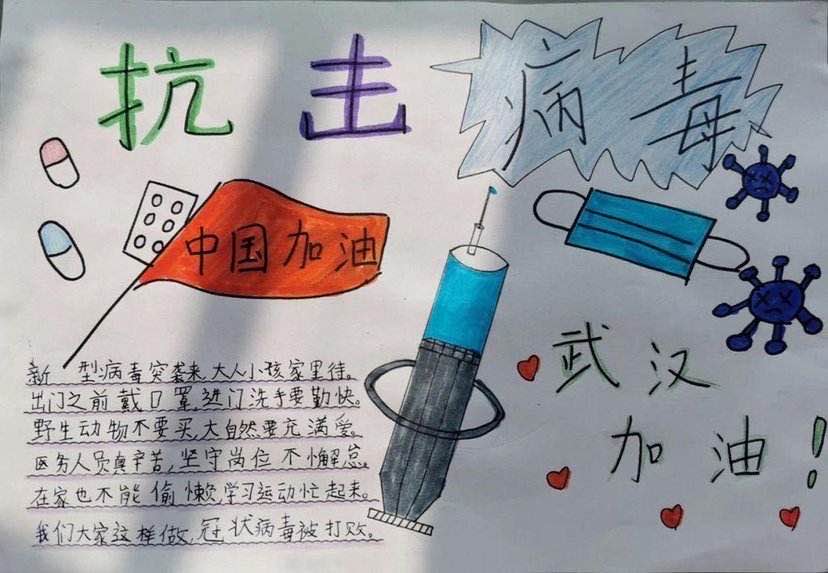 抗击病毒
中国加油
武汉
加油！
新型病毒突袭来,大人小孩家里待。
出门之前戴口罩,进门洗手要勤快。
野生动物不要买,大自然要充满爱。
医务人员真辛苦,坚守岗位不懈怠。
在家也不能偷懒,学习运动忙起来。
我们大家这样做,冠状病毒被打败。